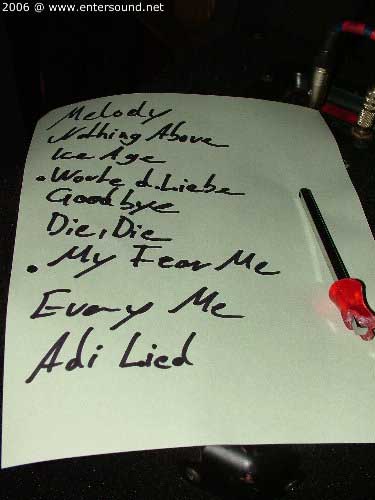 2006 @ www.entersound.net
Melody
Nothing Above
Ice Age
• Worte d. Liebe
Goodbye
Die, Die
• My Fear Me
Every Me
Adi Lied